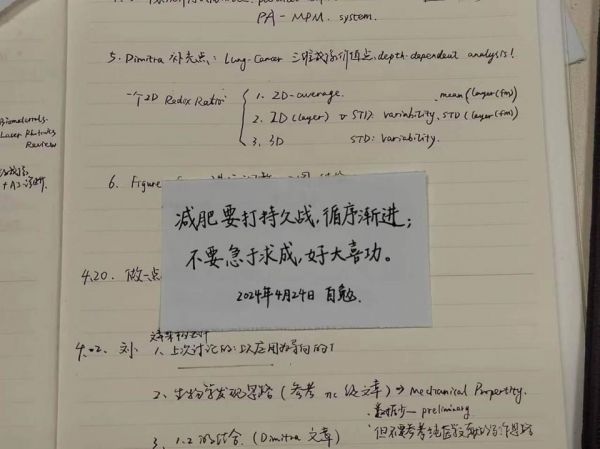 PA - MPM. system.
5. Dimitra 补充点: Lung-Cancer 三维成像价值点, depth-dependent analysis!
一个2D Redox Ratio:
1. 2D-average. mean (layer(fm))
2. 2D (layer) STD: variability. STD (layer(fm))
3. 3D STD: variability.
Biomaterials.
Laser Photonics
Review
6. Figure
减肥要打持久战,循序渐进;
不要急于求成,好大喜功。
2024年4月24日 自勉.
4.20. 做一点
4.02. 刘 1. 上次讨论的:以应用为导向的!
2. 生物学发现思路 (参考 nc 级文章) → Mechanical Propertity.
数据少 — preliminary
3. 1.2 的结合. (Dimitra 文章)